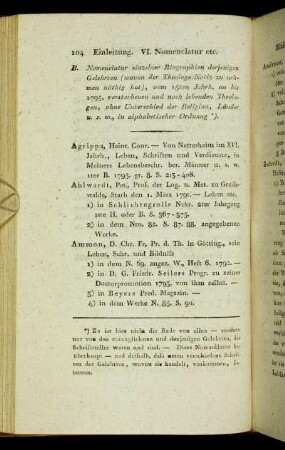 104 Einleitung. VI. Nomenclatur etc.
B. Nomenclatur einzelner Biographien derjenigen
Gelehrten (wovon der Theologe Notiz zu neh-
men nöthig hat), vom 15ten Jahrh. an bis
1795. verstorbenen und noch lebenden Theolo-
gen, ohne Unterschied der Religion, Länder
u. s. w., in alphabetischer Ordnung *).
Agrippa, Heinr. Corn. — Von Nettesheim im XVI.
Jahrh., Leben, Schriften und Verdienste, in
Meiners Lebensbeschr. ber. Männer u. s. w.
1ter B. 1795. gr. 8. S. 213-408.
Ahlwardt, Pet., Prof. der Log. u. Met. zu Greifs-
walde, Starb den 1. März 1791. — Leben etc.
1) in Schlichtegrolls Nekr. 2ter Jahrgang
1ste H. oder B. S. 367-375.
2) in dem Nro. 82. S. 87. 88. angegebenen
Werke.
Ammon, D. Chr. Fr., Pr. d. Th. in Götting., sein
Leben, Schr. und Bildniß
1) in dem N. 69. angez. W., Heft 6. 1792. —
2) in D. G. Friedr. Seilers Progr. zu seiner
Doctorpromotion 1795. von ihm selbst. —
3) in Beyers Pred. Magazin. —
4) in dem Werke N. 85. S. 90.
*) Es ist hier nicht die Rede von allen — sondern
nur von den vorzüglichsten und denjenigen Gelehrten, die
Schriftsteller waren und sind. — Diese Nomenclatur ist
überhaupt — und deshalb, daß unter verschiedene Schrif-
ten des Gelehrten, wovon sie handelt, vorkommen,